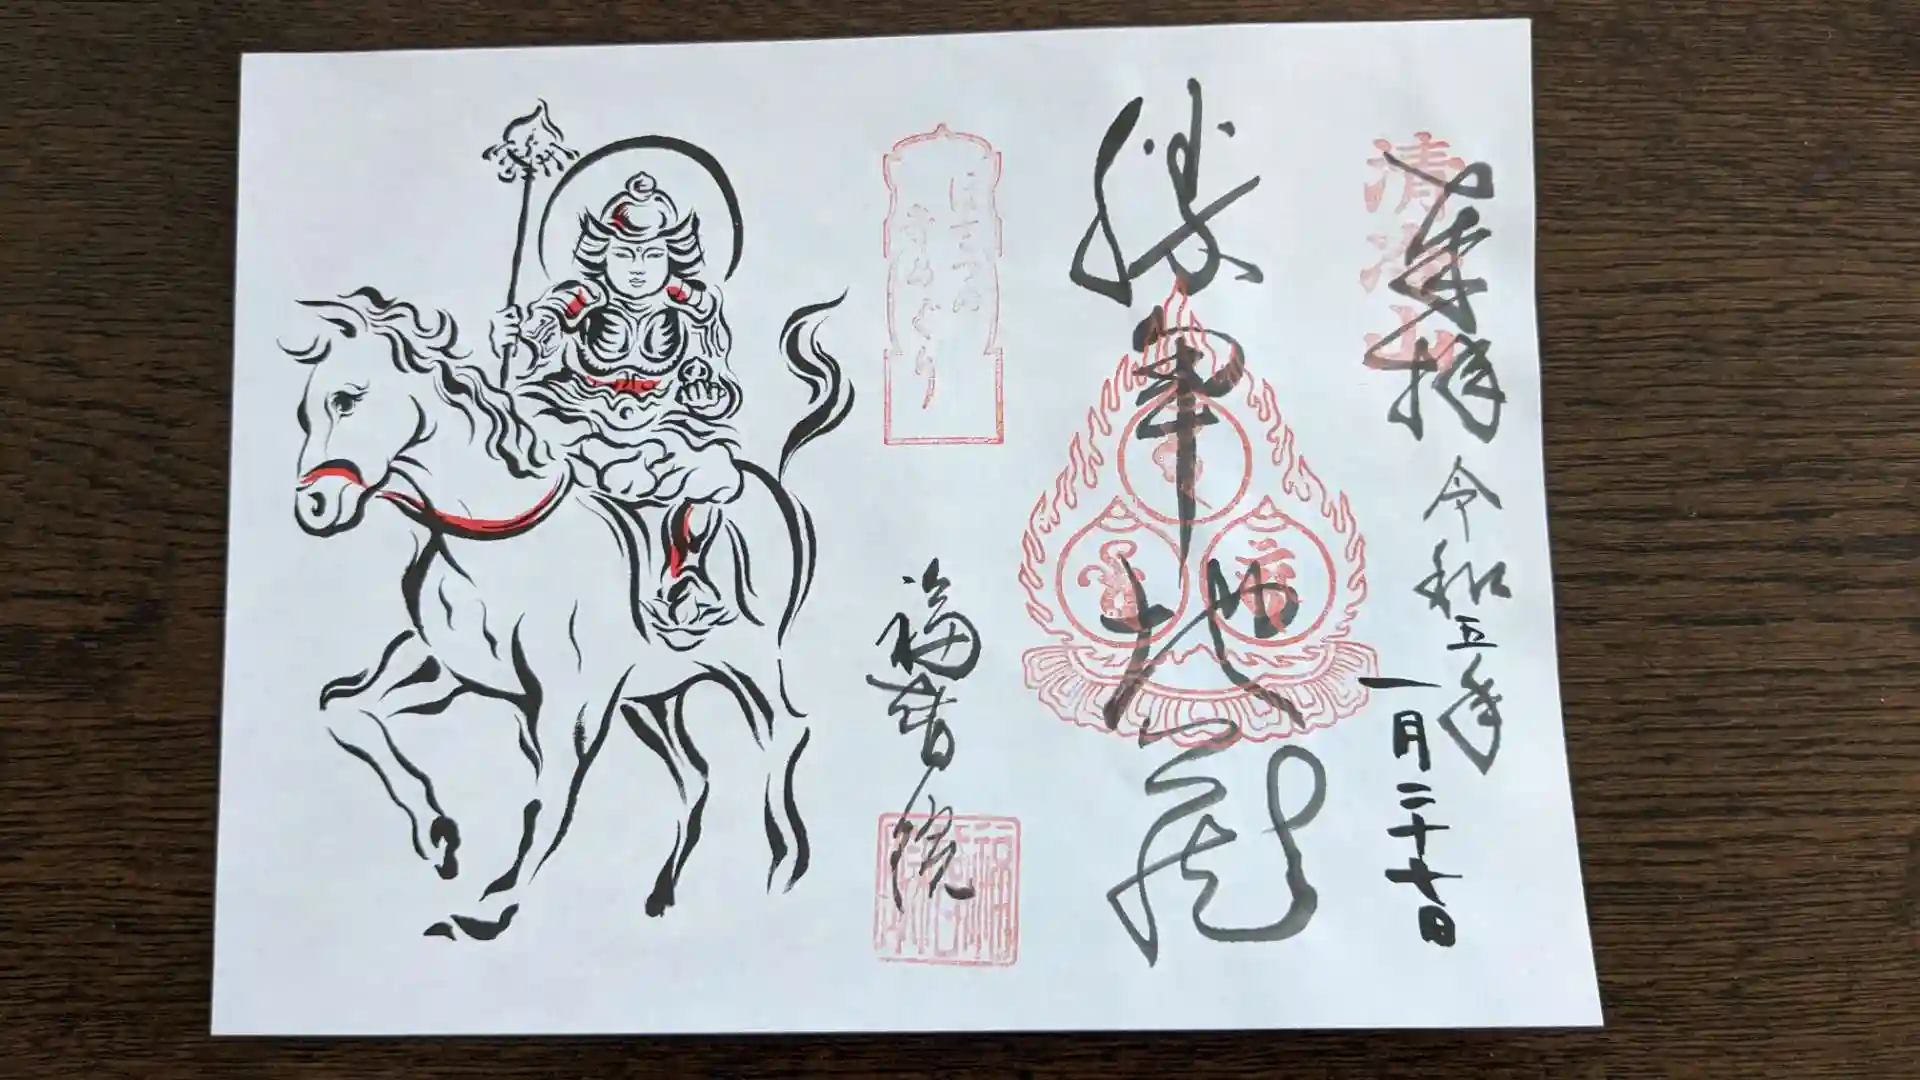 奉拝
令和五年
一月二十七日
清冷山
勝軍地蔵
ほとけの
寺めぐり
福智院